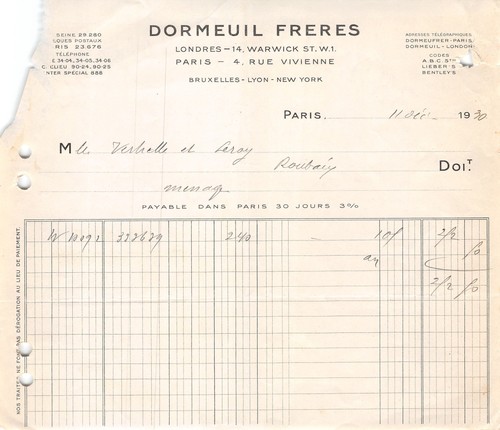 DORMEUIL FRERES
LONDRES – 14, WARWICK ST. W.1.
PARIS – 4, RUE VIVIENNE
BRUXELLES – LYON – NEW YORK
SEINE 29.280
QUES POSTAUX
RIS 23.676
TÉLÉPHONE
E 34-04, 34-05, 34-06
C. CLIEU 90-24, 90-25
NTER SPÉCIAL 888
ADRESSES TÉLÉGRAPHIQUES
DORMEUFRER-PARIS
DORMEUIL-LONDON
CODES
A.B.C. 5TH
LIEBER'S
BENTLEY'S
PARIS, 11 Déc. 1930
Mlle et Leroy
Roubaix DOIT
PAYABLE DANS PARIS 30 JOURS 3%
332629 240 10f 2/2
2/2
NOS TRAITES NE FONT PAS DÉROGATION AU LIEU DE PAIEMENT.